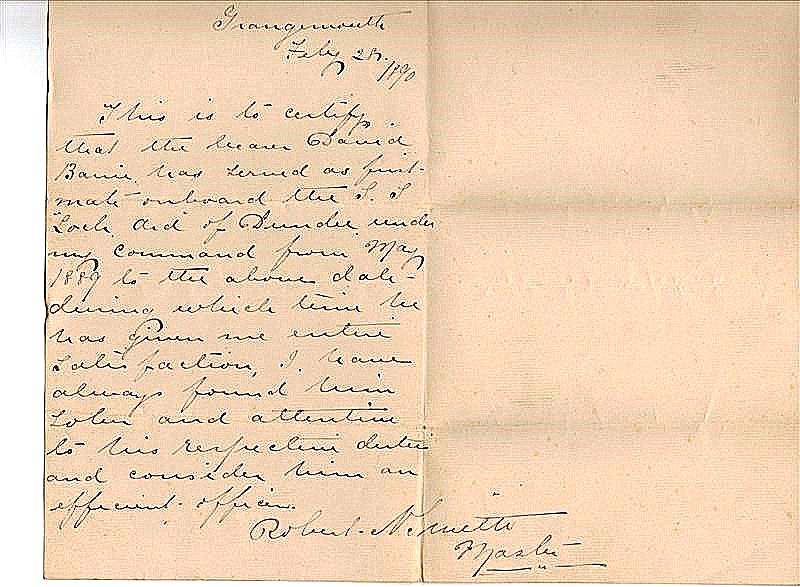 Grangemouth
Feby 28.
1890
This is to certify
that the bearer David
Barrie has served as first
mate onboard the S. S
Loch Ard of Dundee under
my command from May
1889 to the above date
during which time he
has given me entire
satisfaction, I have
always found him
sober and attentive
to his respective duties
and consider him an
efficient officer.
Robert
Master